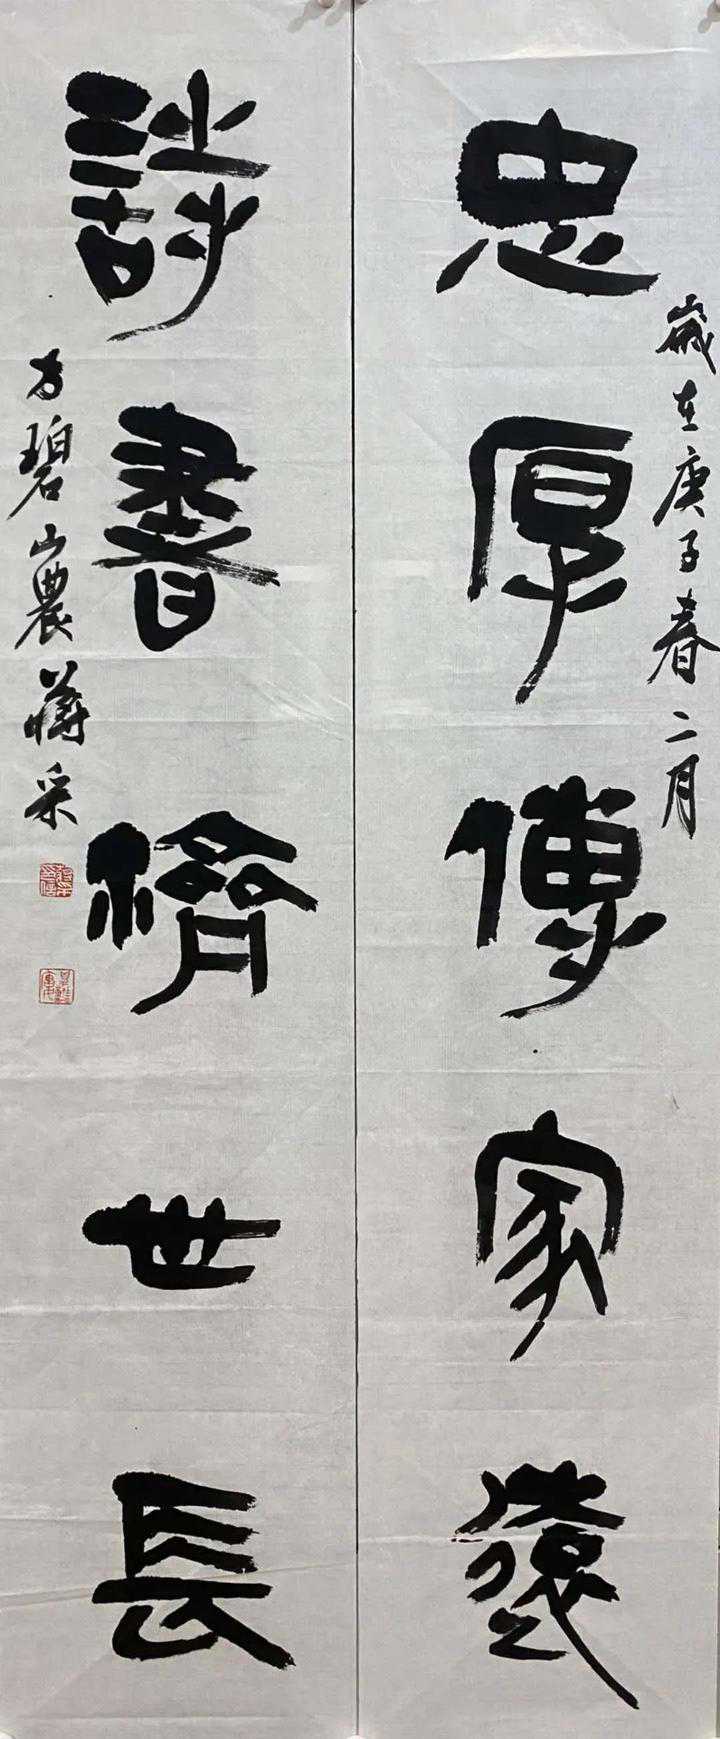 歲在庚子春二月
忠厚傳家遠
詩書濟世長
方碧山農蔣采